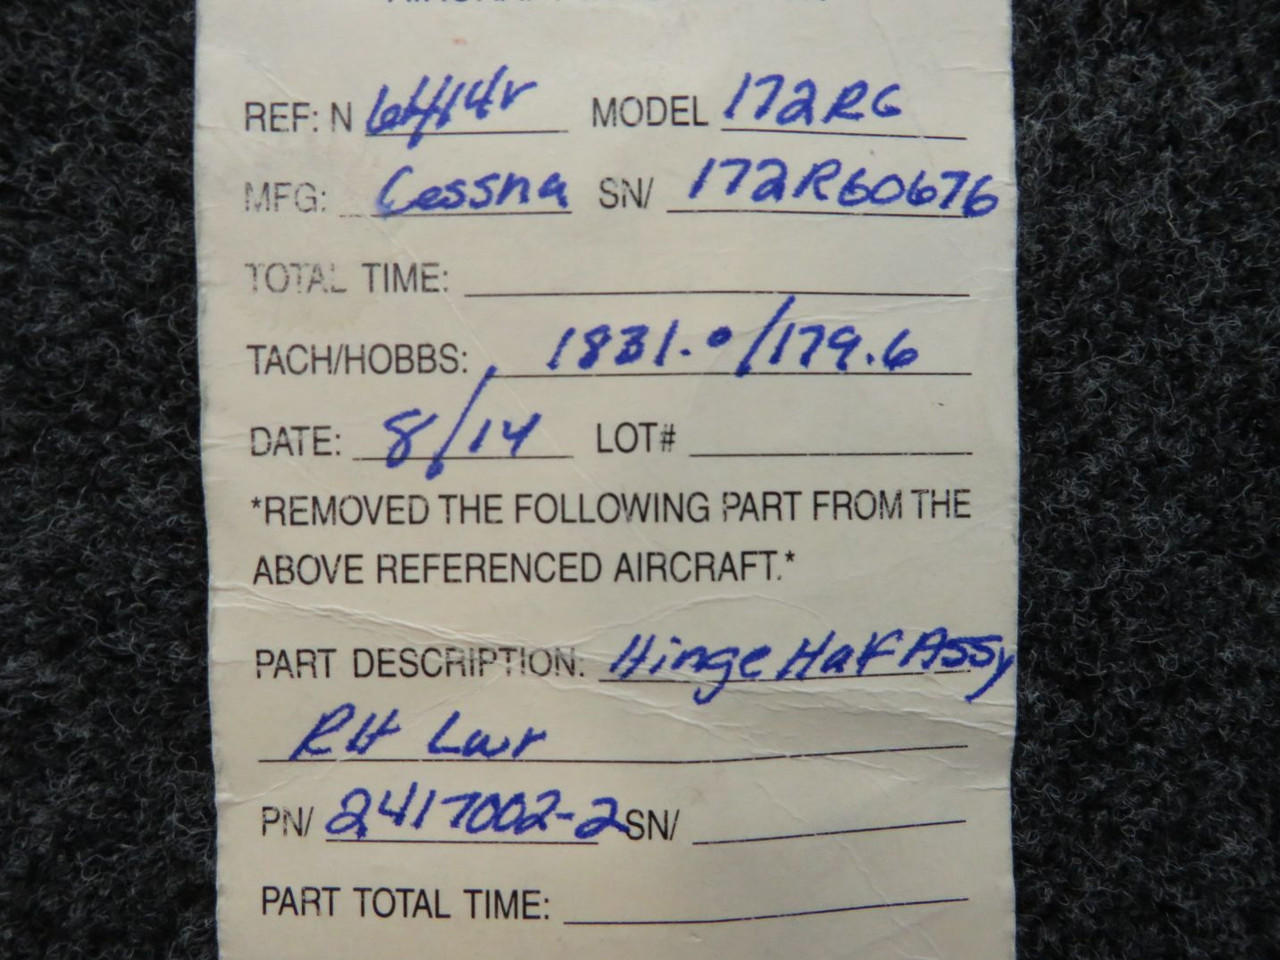 REF: N 6414V MODEL 172RG
MFG: Cessna SN/ 172RG0676
TOTAL TIME:
TACH/HOBBS: 1831.0/179.6
DATE: 8/14 LOT#
*REMOVED THE FOLLOWING PART FROM THE
ABOVE REFERENCED AIRCRAFT.*
PART DESCRIPTION: Hinge Half Assy
RH Lwr
PN/ 2417002-2 SN/
PART TOTAL TIME: